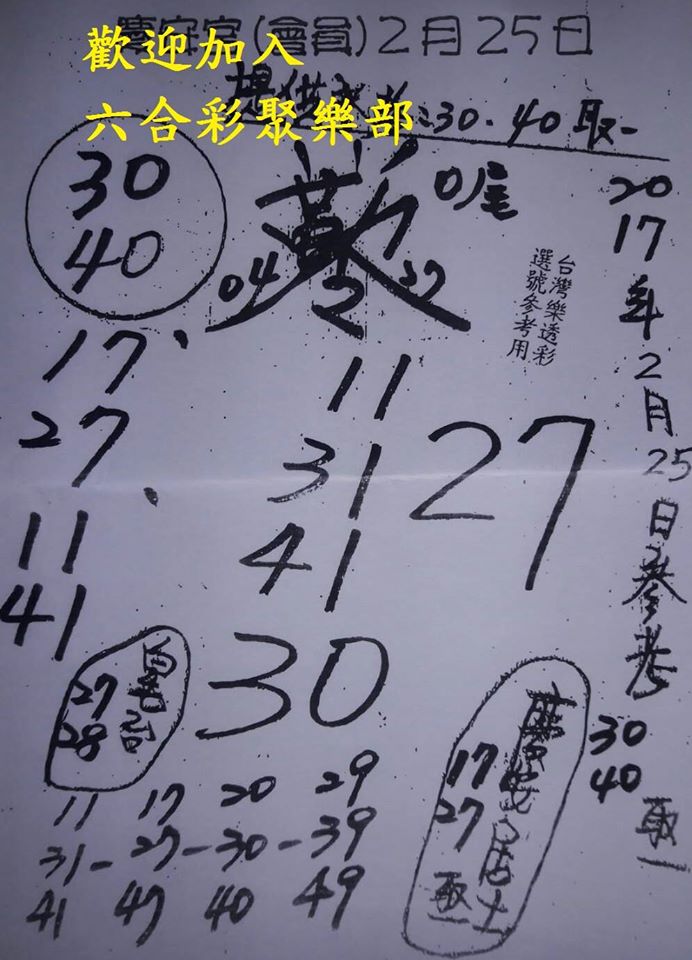 慶安宮(會員)2月25日
歡迎加入
六合彩聚樂部
30.40取一
30
40
0尾
04
2
27
台灣樂透彩
選號參考用
2017年2月25日參考
30
40
取一
17、
27、
11
41
11
31
41
27
30
27
28
17
27
取一
11 17 20 29
31-27-30-39
41 47 40 49